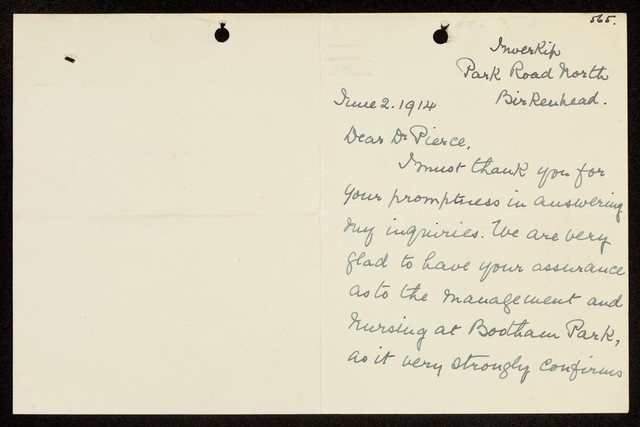 565.
Inverkip
Park Road North
Birkenhead.
June 2. 1914
Dear Dr Pierce,
I must thank you for
your promptness in answering
my inquiries. We are very
glad to have your assurance
as to the management and
nursing at Bootham Park,
as it very strongly confirms